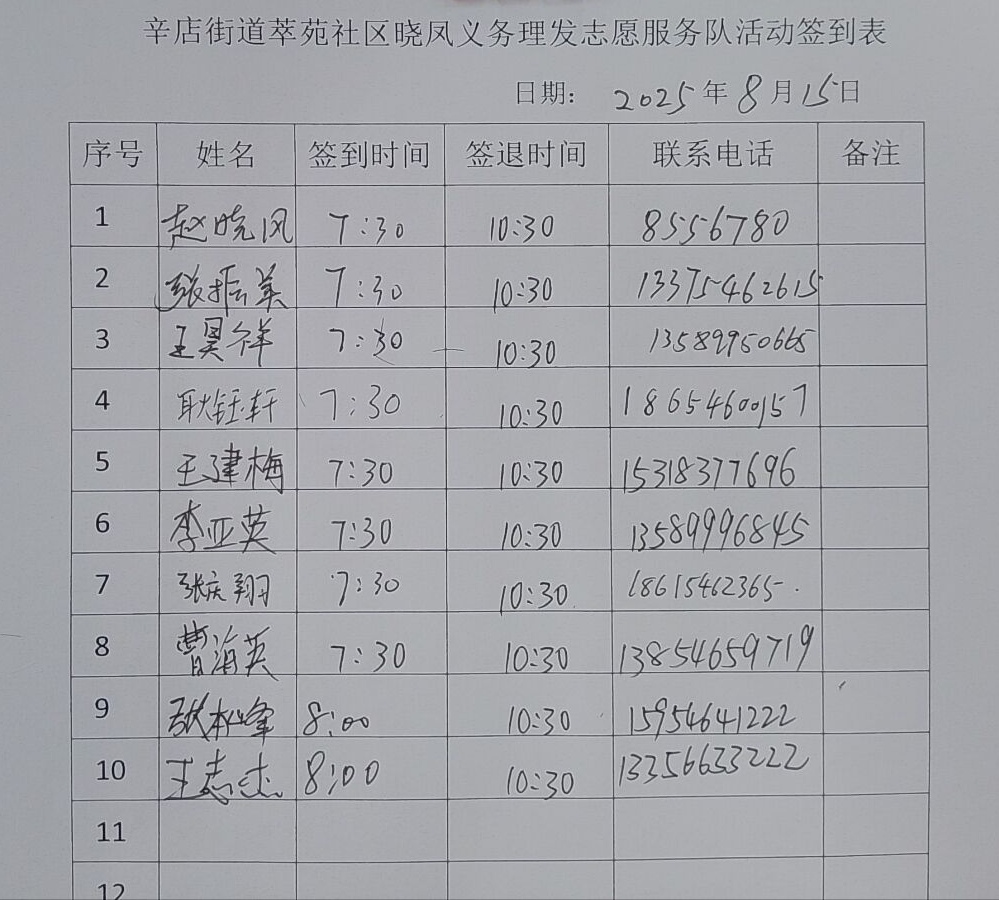 辛店街道萃苑社区晓凤义务理发志愿服务队活动签到表
日期: 2025年8月15日
序号 姓名 签到时间 签退时间 联系电话 备注
1 赵晓凤 7:30 10:30 8556780
2 张振英 7:30 10:30 13375462615
3 王昊祥 7:30 10:30 13589950665
4 耿钰轩 7:30 10:30 18654600157
5 王建梅 7:30 10:30 15318377696
6 李亚英 7:30 10:30 13589996845
7 张庆翔 7:30 10:30 18615462365
8 曹海英 7:30 10:30 13854659719
9 张松峰 8:00 10:30 15954641222
10 王志杰 8:00 10:30 13356633222
11
12